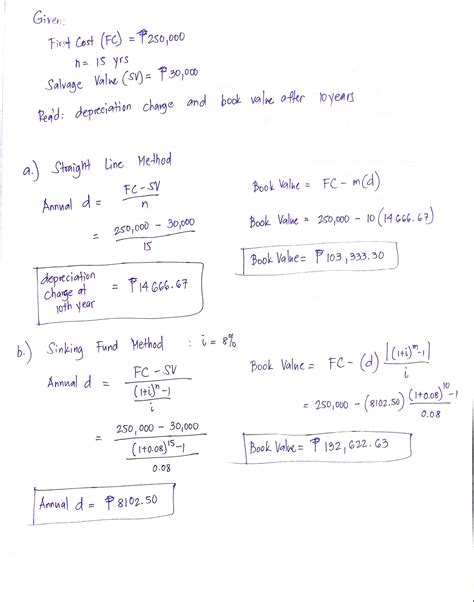 Given:
First Cost (FC) = ₱250,000
n = 15 yrs
Salvage Value (SV) = ₱30,000
Req'd: depreciation charge and book value after 10 years
a.) Straight Line Method
Annual d = FC - SV / n
= 250,000 - 30,000 / 15
depreciation charge at 10th year = ₱14 666.67
Book Value = FC - m(d)
Book Value = 250,000 - 10 (14 666.67)
Book Value = ₱ 103,333.30
b.) Sinking Fund Method : i = 8%
Annual d = FC - SV / (1+i)^n - 1 / i
= 250,000 - 30,000 / (1+0.08)^15 - 1 / 0.08
Annual d = ₱ 8102.50
Book Value = FC - (d) [(1+i)^m - 1] / i
= 250,000 - (8102.50) (1+0.08)^10 - 1 / 0.08
Book Value = ₱ 132,622.63